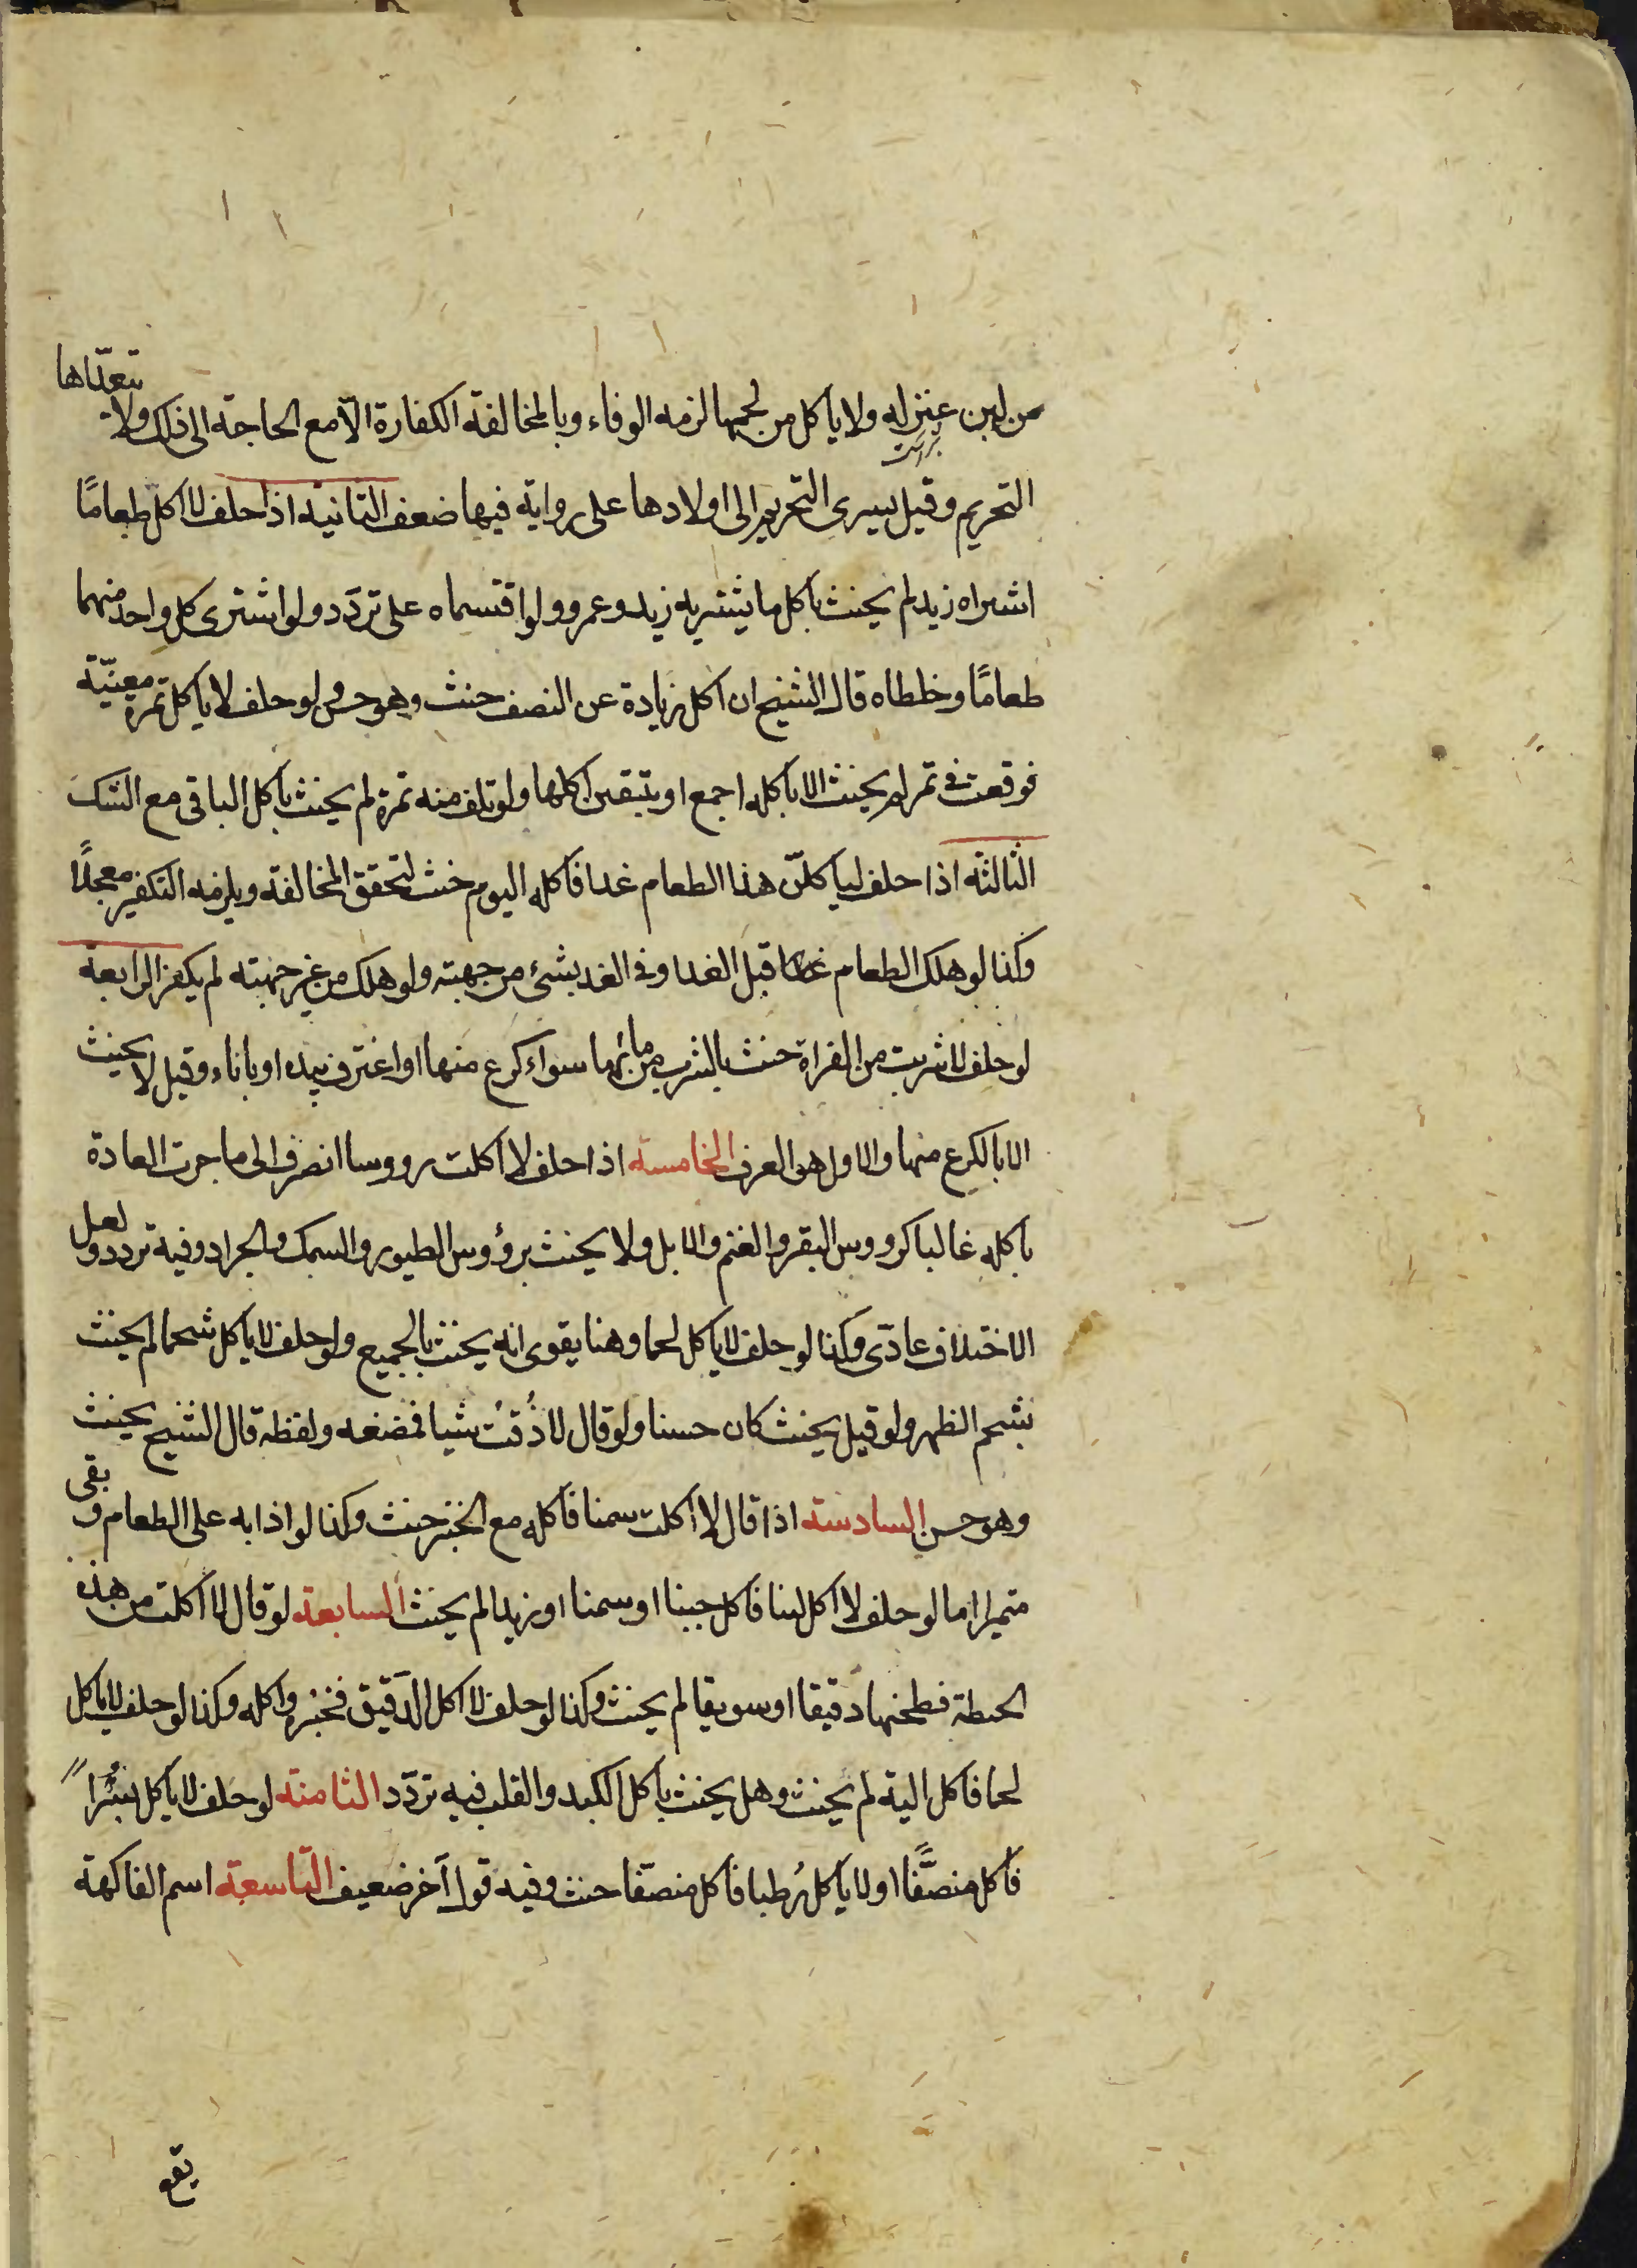 من لبن عنز له ولا ياكل من لحمها لزمه الوفاء وبالمخالفة الكفارة الّا مع الحاجة الى ذلك ولا يتعدّاها
التحريم وقيل يسرى التحريم الى اولادها على رواية فيها ضعف الثانية اذا حلف لا اكل طعامًا
اشتراه زيد لم يحنث باكل ما يشتريه زيد وعمرو ولو اقتسماه على تردّد ولو اشترى كل واحد منهما
طعامًا وخلطاه قال الشيخ ان اكل زيادة عن النصف حنث وهو حسن ولو حلف لا ياكل تمرة معينّة
فوقعت في تمر لم يحنث الا باكله اجمع او يتيقن اكلها ولو تلف منه تمرة لم يحنث باكل الباقى مع الشك
الثالثة اذا حلف لياكلنّ هذا الطعام غدا فاكله اليوم حنث لتحقق المخالفة ويلزمه التكفير معجلًا
وكذا لو هلك الطعام قبل الغد او في الغد بشئ من جهته ولو هلك من غير جهته لم يكفر الرابعة
لو حلف لا شربت من الفراة حنث بالشرب من مائها سواء كرع منها او اغترف بيده او باناء وقيل لا يحنث
الا بالكرع منها والاول هو العرف الخامسة اذا حلف لا اكلت رووسا انصرف الى ما جرت العادة
باكله غالبا كرووس البقر والغنم والابل ولا يحنث برؤوس الطيور والسمك والجراد وفيه تردد ولعل
الاختلاف عادّى وكذا لو حلف لا ياكل لحما وهنا يقوى انه يحنث بالجميع ولو حلف لا ياكل شحما لم يحنث
بشحم الظهر ولو قيل يحنث كان حسنا ولو قال لا ذُقتُ شيا فمضغه ولفظه قال الشيخ يحنث
وهو حسن السادسة اذا قال لا اكلت سمنا فاكله مع الخبز حنث وكذا لو اذابه على الطعام وبقى
متميزا اما لو حلف لا اكل لبنا فاكل جبنا او سمنا او زبدا لم يحنث السابعة لو قال لا اكلت من هذه
الحنطة فطحنها دقيقا او سويقا لم يحنث وكذا لو حلف لا اكل الدّقيق فخبزه واكله وكذا لو حلف لا ياكل
لحما فاكل الية لم يحنث وهل يحنث باكل الكبد والقلب فيه تردّد الثامنة لو حلف لا ياكل بسُرًا
فاكل منصّفًا او لا ياكل رُطبا فاكل منصّفا حنث وفيه قول آخر ضعيف التاسعة اسم الفاكهة
يقع